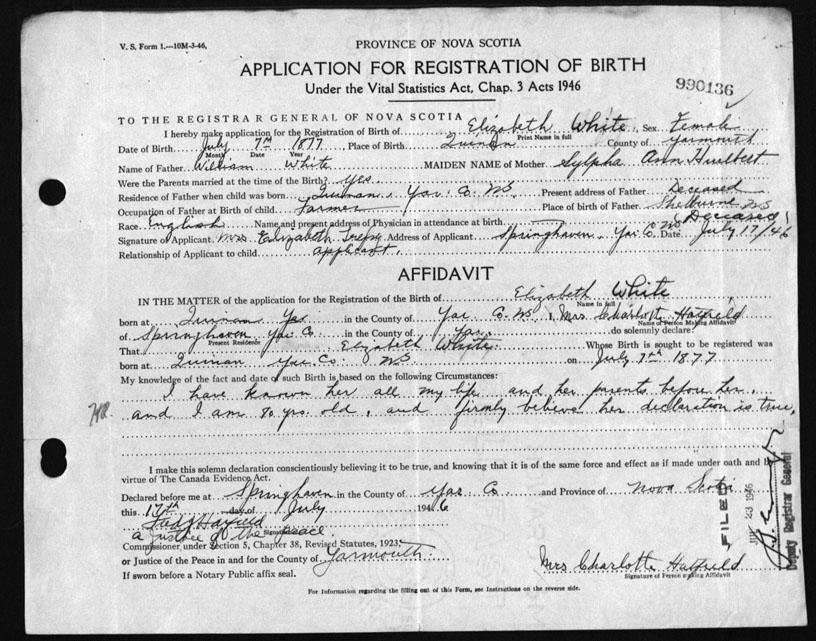 V. S. Form 1.—10M-3-46.
PROVINCE OF NOVA SCOTIA
APPLICATION FOR REGISTRATION OF BIRTH
Under the Vital Statistics Act, Chap. 3 Acts 1946
990136
TO THE REGISTRAR GENERAL OF NOVA SCOTIA
I hereby make application for the Registration of Birth of Elizabeth White, Sex Female
Print Name in full
Date of Birth July 7th 1877 Place of Birth Quinan County of Yarmouth
Month Date Year
Name of Father William White MAIDEN NAME of Mother Sylpha Ann Hurlbert
Were the Parents married at the time of the Birth? yes.
Residence of Father when child was born Quinan, Yar. Co. NS Present address of Father Deceased
Occupation of Father at Birth of child farmer Place of birth of Father Shelburne NS
(Deceased)
Race English Name and present address of Physician in attendance at birth
Signature of Applicant Mrs Elizabeth Address of Applicant Springhaven, Yar. Co NS Date July 17/46
Relationship of Applicant to child applicant.
AFFIDAVIT
IN THE MATTER of the application for the Registration of Birth of Elizabeth White,
Name in full
born at Quinan Yar in the County of Yar Co. NS, I Mrs Charlotte Hatfield
Name of Person Making Affidavit
of Springhaven Yar Co in the County of Yar. do solemnly declare:
Present Residence
That Elizabeth White. Whose Birth is sought to be registered was
born at Quinan Yar. Co. NS on July 7th 1877
My knowledge of the fact and date of such Birth is based on the following Circumstances:
I have known her all my life and her parents before her,
and I am 80 yrs. old, and firmly believe her declaration is true,
I make this solemn declaration conscientiously believing it to be true, and knowing that it is of the same force and effect as if made under oath and by
virtue of The Canada Evidence Act.
Declared before me at Springhaven in the County of Yar Co. and Province of Nova Scotia
this 17th day of July 1946
Hatfield
a Justice of the Peace.
Commissioner under Section 5, Chapter 38, Revised Statutes, 1923,
or Justice of the Peace in and for the County of Yarmouth.
If sworn before a Notary Public affix seal.
Mrs Charlotte Hatfield
Signature of Person making Affidavit
For Information regarding the filling out of this Form, see Instructions on the reverse side.
FILED
23 1946
Deputy Registrar General